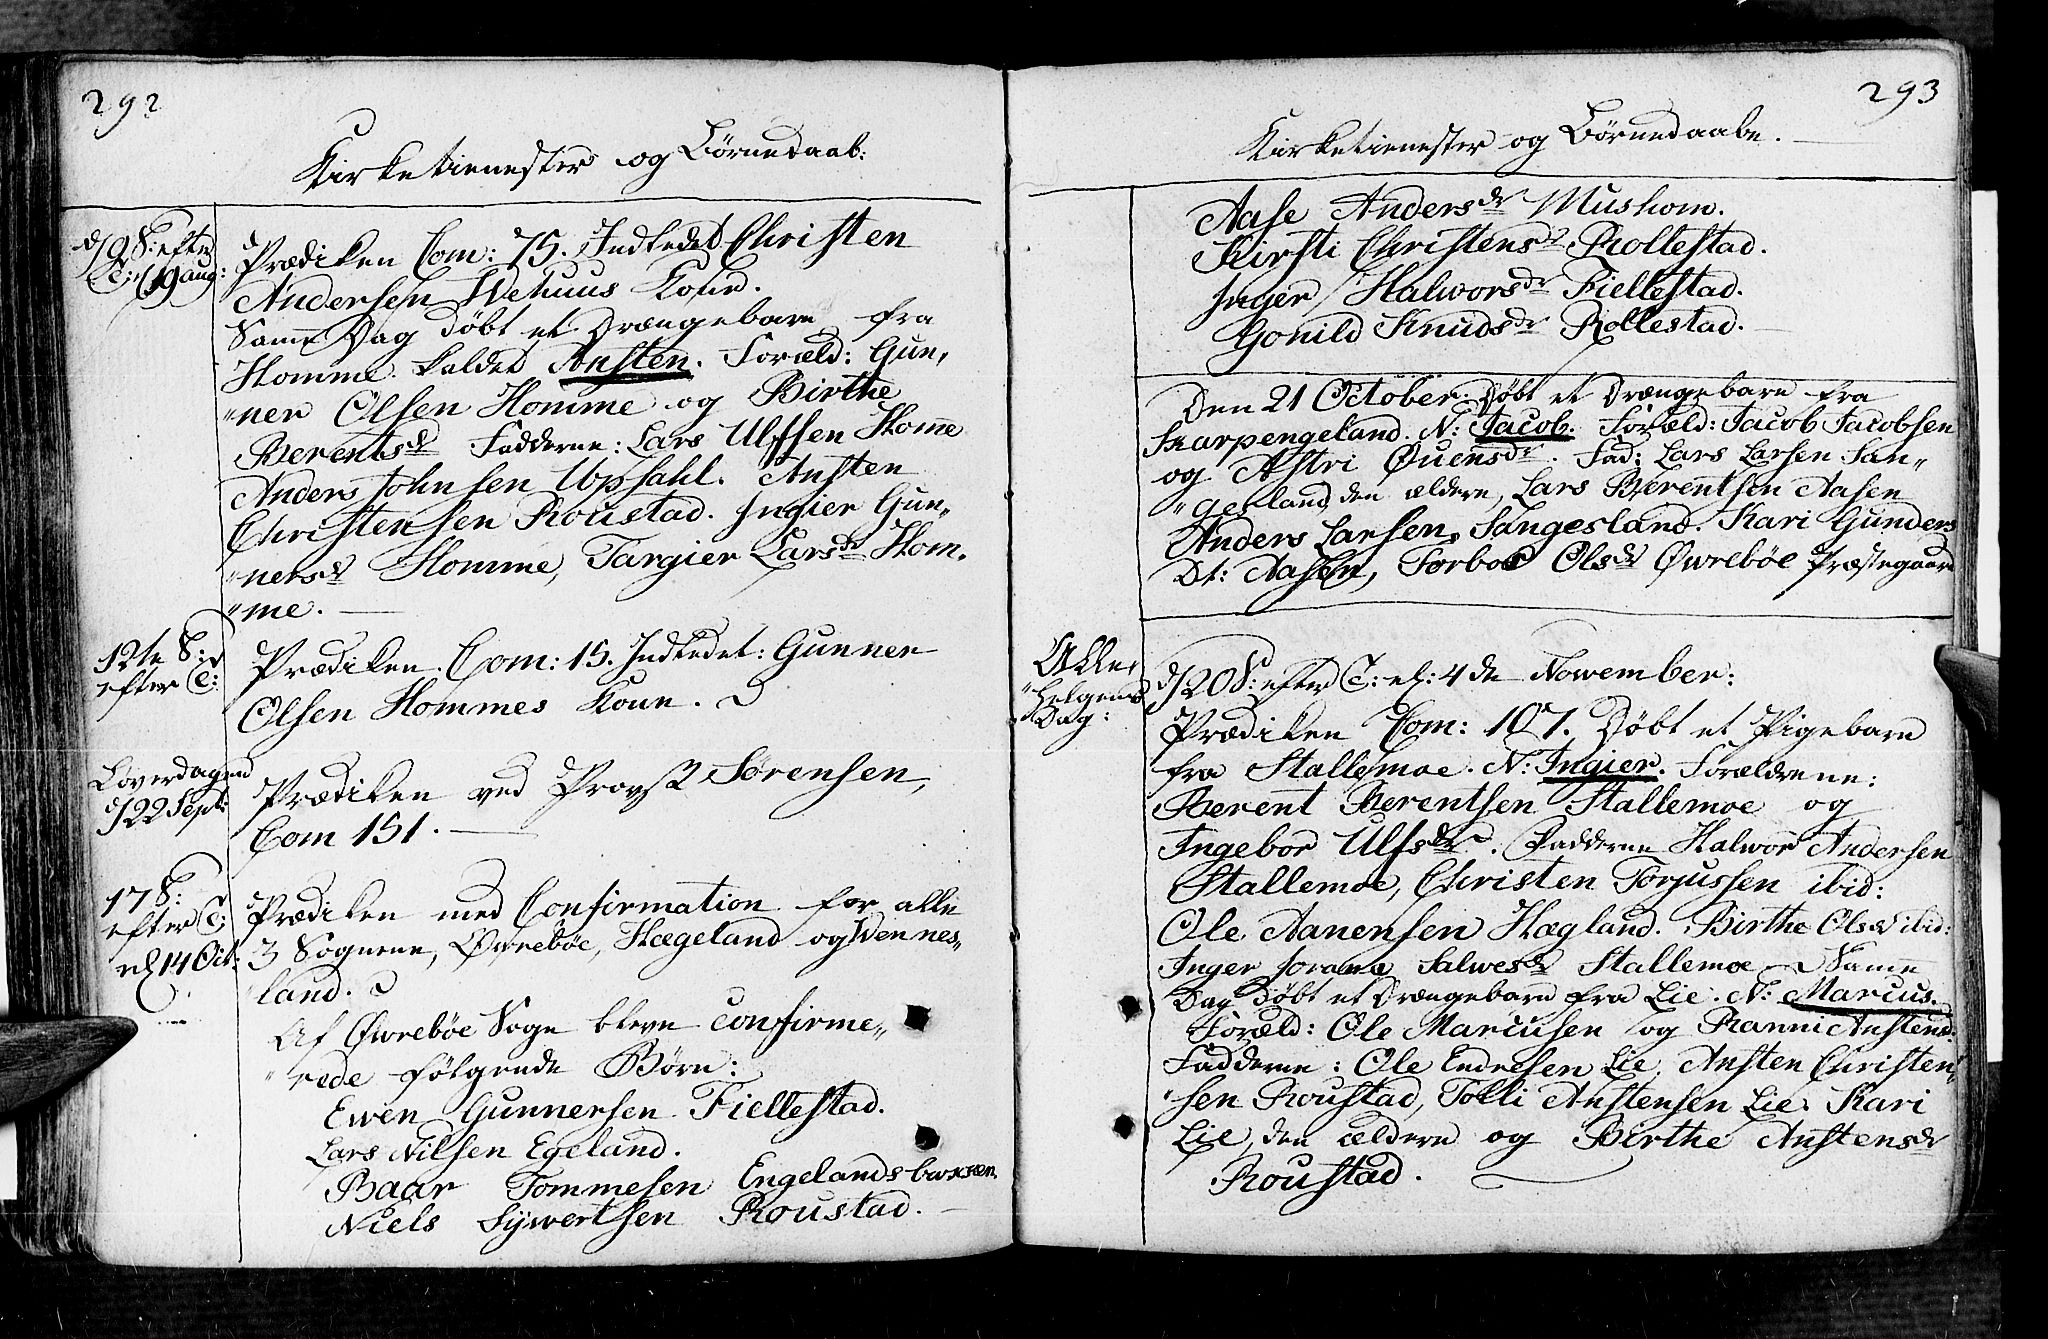 292
Kirketienester og Børnedaab:
d/ 9 S: efter
T: /19 aug:
Prædiken Com: 75. Indledet Christen
Andersen Wehuus Kone.
Samme Dag døbt et Drængebarn fra
Homme kaldet Ansten. Foræld: Gun„
„ner Olsen Homme og Birthe
Berentsdr Fadderne: Lars Ulfsen Home
Anders Johnsen Upsahl. Ansten
Christensen Roustad. Ingier Gun„
„nersdr Homme, Targier Larsdr Hom„
„me.
12te S:
efter T:
Prædiken. Com: 15. Indledet: Gunner
Olsen Hommes Kone.
Løverdagen
d/ 22 Sept:
Prædiken ved Provst Sørensen,
Com 151.
17 S:
efter T:
el 14 Oct:
Prædiken med Confirmation for alle
3 Sognene, Øwrebøe, Hægeland og Wennes„
„land.
Af Øwrebøe Sogn bleve confirme„
„rede følgende Børn:
Ewen Gunnersen Fiellestad.
Lars Nilsen Egeland.
Baar Tommesen Engelands
Niels Sywertsen Roustad.
293
Kirketienester og Børnedaabe.
Aase Andersdr Mushom.
Kirsti Christensdr Rollestad.
Inger Halworsdr Fiellestad.
Gonild Knudsdr Rollestad.
Den 21 October: Døbt et Drængebarn fra
Skarpengeland. N: Jacob. Foræld: Jacob Jacobsen
og Astri Øuensdr. Fad: Lars Larsen San„
„gesland, den ældere, Lars Berentsen Aasen
Anders Larsen, Sangesland. Kari Gunders
Dt: Aasen, Torbor Olsdr Øwrebøe Præstegaard
Alle„
„helgens
Dag:
d/ 20 S: efter T: el: 4 de Nowember:
Prædiken Com: 107. Døbt et Pigebarn
fra Stallemoe. N: Ingier. Forældrene:
Berent Berentsen Stallemoe og
Ingebor Ulfsdr. Fadderne Halwor Andersen
Stallemoe, Christen Torjussen ibid:
Ole Aanensen Hægland. Birthe Olsdr ibid:
Inger Salwesdr Stallemoe. Samme
Dag døbt et Drængebarn fra Lie. N: Marcus.
Foræld: Ole Marcusen og Ranni Anstensd:
Fadderne: Ole Endresen Lie, Ansten Christen„
„sen Roustad, Tolli Anstensen Lie. Kari
Lie, den ældere og Birthe Anstensdr
Roustad.